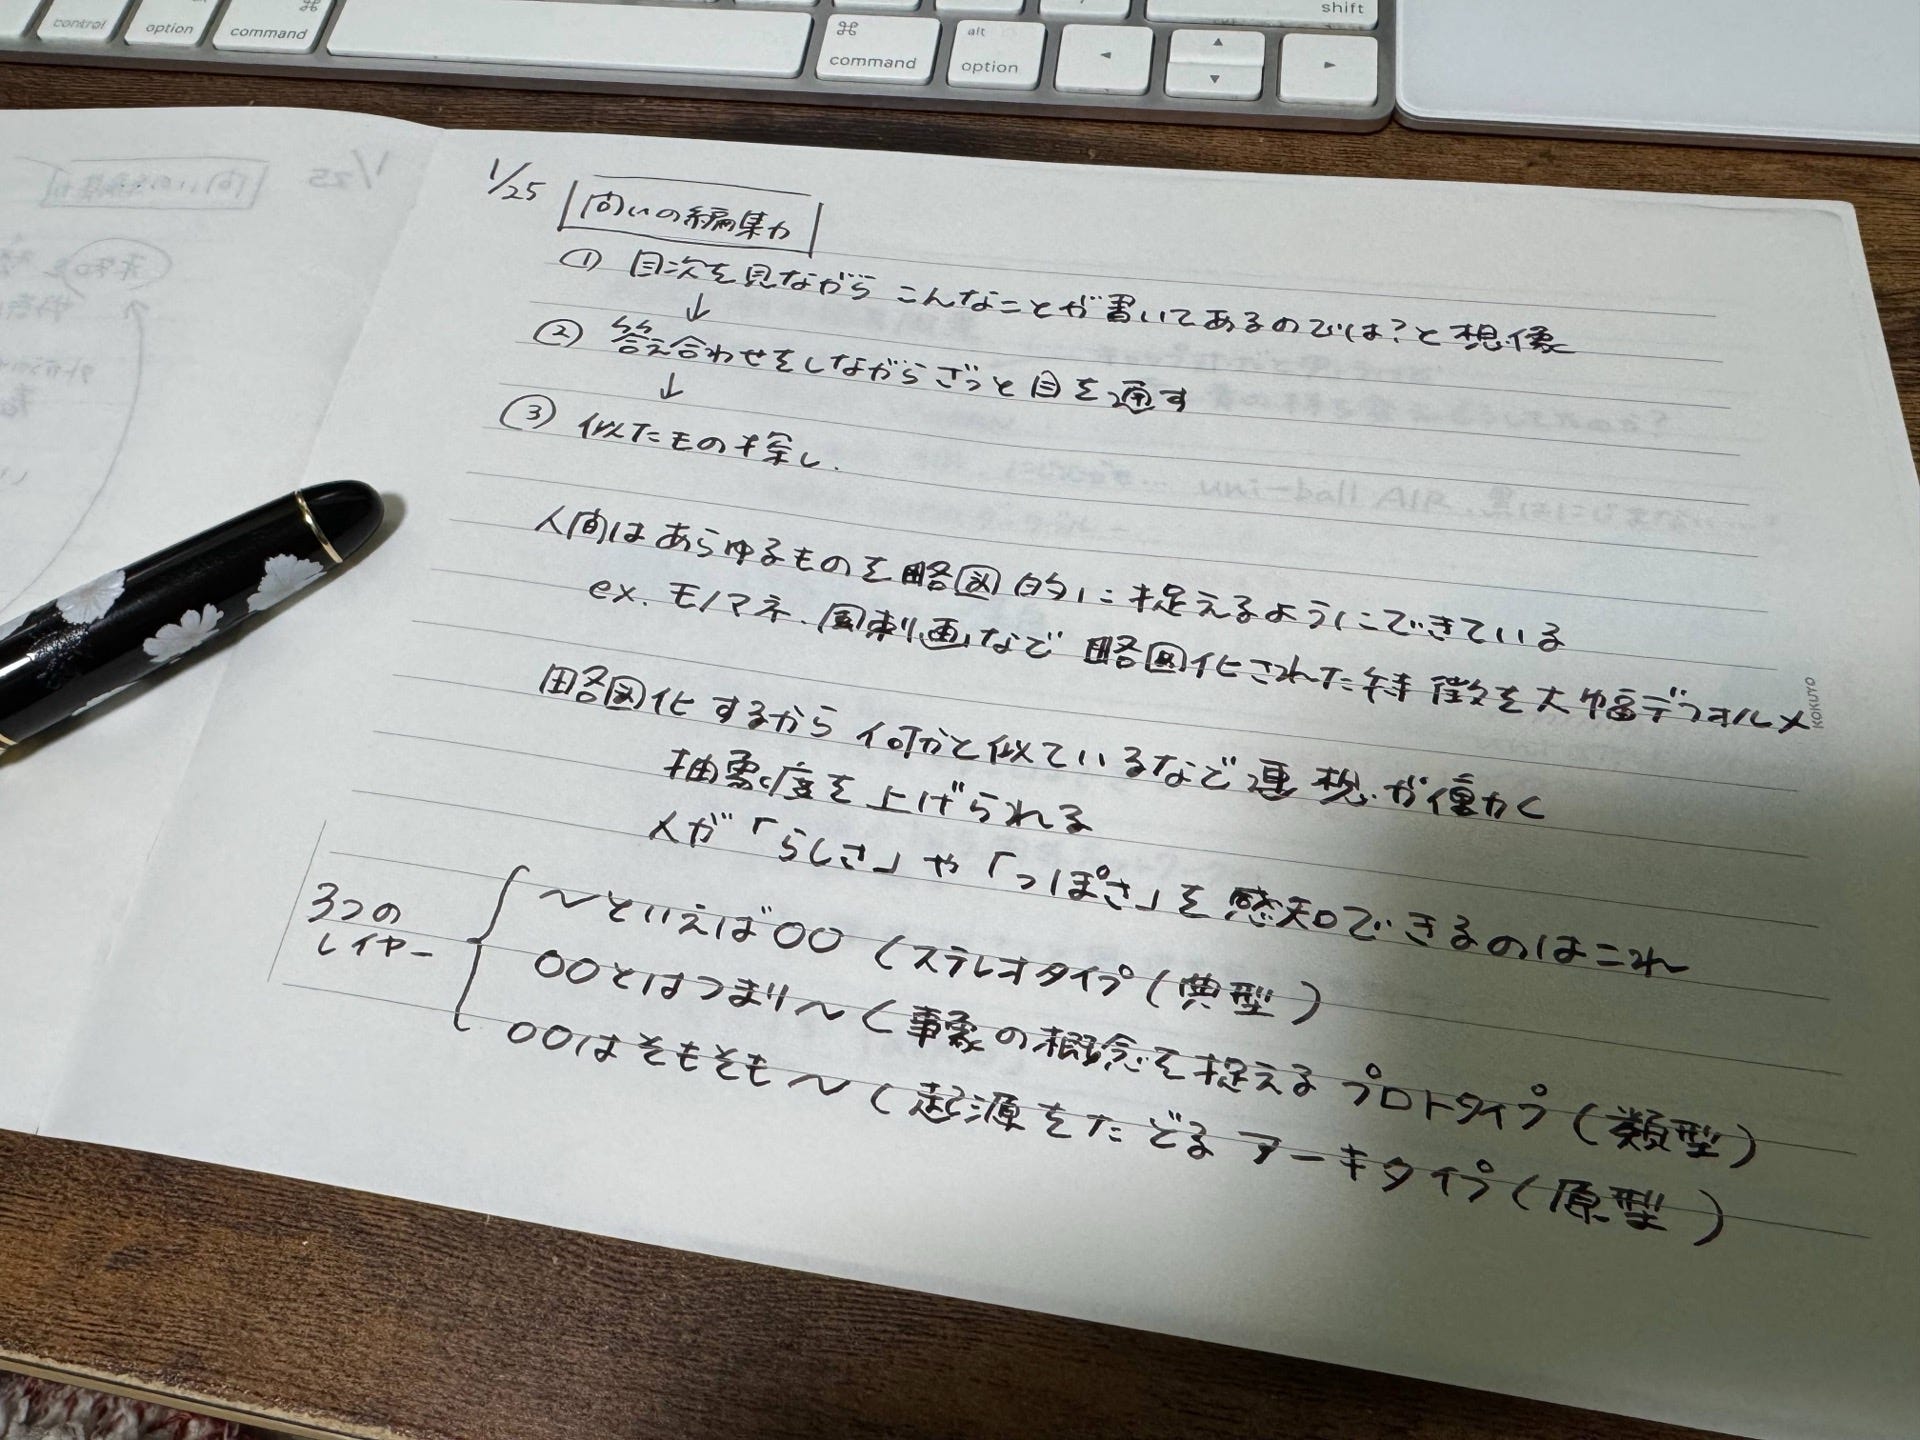 shift
control
option
command
⌘
⌘
command
alt
option
1/25 問いの編集力
① 目次を見ながら こんなことが書いてあるのでは?と想像
↓
② 答え合わせをしながらざっと目を通す
↓
③ 似たもの探し.
人間はあらゆるものを略図的に捉えるようにできている
ex. モノマネ、風刺画などで 略図化された特徴を大幅デフォルメ
KOKUYO
略図化するから 何かと似ているなど連想が働く
抽象度を上げられる
人が「らしさ」や「っぽさ」を感知できるのはこれ
3つの
レイヤー
〜といえば〇〇 (ステレオタイプ(典型)
〇〇とはつまり〜 (事象の概念を捉える プロトタイプ(類型)
〇〇はそもそも〜 (起源をたどる アーキタイプ(原型)
1/25
uni-ball AIR